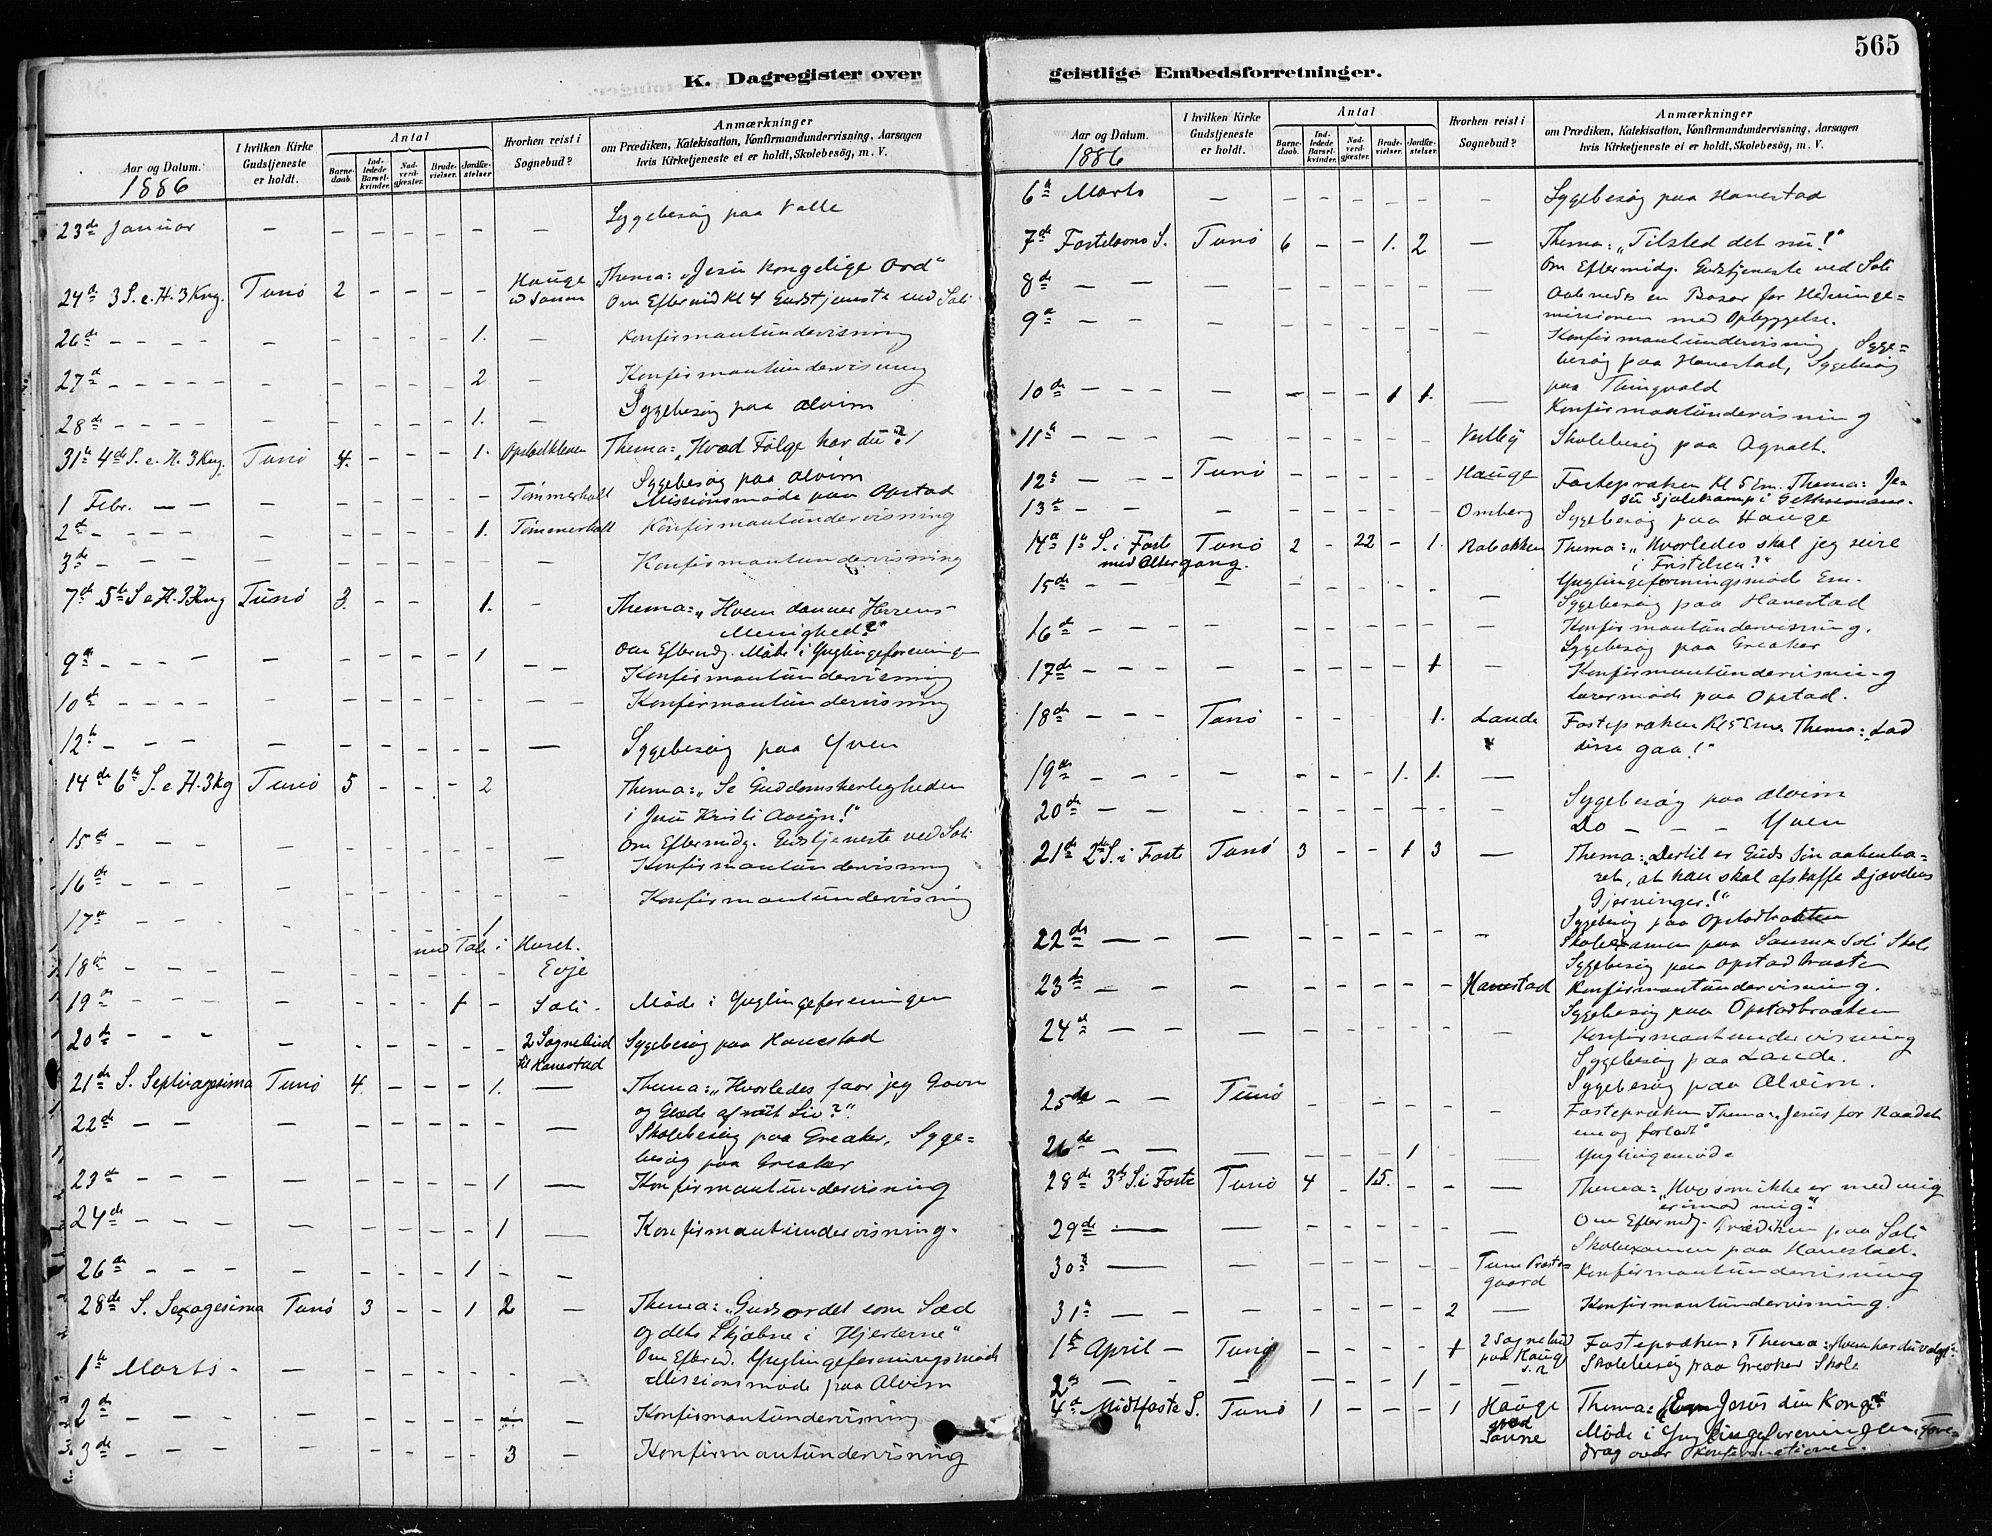 565
K. Dagregister over
geistlige Embedsforretninger.
Aar og Datum.
1886
I hvilken Kirke Gudstjeneste er holdt.
Antal
Barnedaab.
Indledede Barselkvinder.
Nadverdgjester.
Brudevielser.
Jordfæstelser.
Hvorhen reist i Sognebud?
Anmærkninger
om Prædiken, Katekisation, Konfirmandundervisning, Aarsagen
hvis Kirketjeneste ei er holdt, Skolebesög, m. V.
23de Januar – – – – – – – Sygebesøg paa Valle
24de 3 S. e. H. 3 Kng. Tunø 2 – – – – Hauge Thema: "Jesu kongelige Ord"
Om Eftermid Kl 4 Gudstjeneste ved Soli
26de – – – – – – – – 1. – Konfirmantundervisning
27de – – – – – – – – 2 – Konfirmantundervisning
28de – – – – – – – 1. – Sygebesøg paa Alvim
31te 4de S. e. H. 3 Kng. Tunø 4. – – – 1. Opstadkleven Thema: "Hvad Følge har du?"
Sygebesøg paa Alvim
1 Febr. – – – – – – – – Tømmerholt Missionsmøde paa Opstad
2den – – – – – – – – 1. Tømmerholt Konfirmantundervisning
3de – – – – – – – – – Konfirmantundervisning
7de 5te S e H. 3 Kng Tunø 3. – – 1. – Thema: "Hvem danner Herrens
Menighed?"
Om Eftermdg. Møde i Ynglingeforeningen
9de – – – – – – – – 1 – – Konfirmantundervisning
10de – – – – – – – – – – Konfirmantundervisning
12te – – – – – – – – – Sygebesøg paa Yven
14de 6te S. e H. 3 kg Tunø 5 – – – 2 Thema: "Se Guddomsherligheden
i Jesu Kristi Aasyn!"
15de – – – – – – – – – Om Eftermidg. Gudstjeneste ved Soli
Konfirmantundervisning
16de – – – – – – – – – Konfirmantundervisning
17de – – – – – – – – 1
med Tale i Huset.
18de – – – – – – – – – Evje
19de – – – – – – – 1 – Soli. Møde i Ynglingeforeningen
20de – – – – – – – – – 2 Sognebud Sygebesøg paa Hanestad
til Hanestad
21de S. Septuagesima Tunø 4. – – – 1. – Thema: "Hvorledes faar jeg Gavn
og Glæde af mit Liv?"
22de – – – – – – – – – Skolebesøg paa Greaker, Syge=
besøg paa Greaker
23de – – – – – – – – 1 – Konfirmantundervisning
24de – – – – – – – – 1 – Konfirmantundervisning.
26de – – – – – – – 1 – –
28de S. Sexagesima Tunø 3 – – 1 2 – Thema: "Guds ordet som Sæd
og dets Skjæbne i Hjerterne"
Om Efterm. Ynglingeforeningsmøde
1te Marts – – – – – – – – Missionsmøde paa Alvim
2den – – – – – – – – – Konfirmantundervisning
3de – – – – – – – – 3 – Konfirmantundervisning
Aar og Datum.
1886
I hvilken Kirke Gudstjeneste er holdt.
Antal
Barnedaab.
Indledede Barselkvinder.
Nadverdgjester.
Brudevielser.
Jordfæstelser.
Hvorhen reist i Sognebud?
Anmærkninger
om Prædiken, Katekisation, Konfirmandundervisning, Aarsagen
hvis Kirketjeneste ei er holdt, Skolebesög, m. V.
6te Marts – – – – – – – Sygebesøg paa Hanestad
7de Fastelavns S. Tunø 6 – – 1. 2 – Thema: "Tilsted det nu!"
Om Eftermidg. Gudstjeneste ved Soli
8de – – – – – – – – – Aabnedes en Basar for Hedninge=
missionen med Opbyggelse.
9de – – – – – – – – – Konfirmantundervisning, Syge=
besøg paa Hanestad, Sygebesøg
paa Tingvold
10de – – – – – – – 1 1. – Konfirmantundervisning
11te – – – – – – – – – Vestby Skolebesøg paa Agnalt.
12te – – – Tunø – – – – – Hauge Fastepræken Kl 5 Em. Thema: Je=
su Sjælekamp i Gethsemane.
13de – – – – – – – – – Omberg Sygebesøg paa Hauge
14de 1te S. i Faste Tunø 2 – 22 – 1. Thema: "Hvorledes skal jeg seire
med Altergang. i Fristelsen?"
15de – – – – – – – – – Ynglingeforeningsmøde Em.
Sygebesøg paa Hanestad
16de – – – – – – – – – Konfirmantundervisning.
Sygebesøg paa Greaker
17de – – – – – – – – 1 – Konfirmantundervisning
Lærermøde paa Opstad.
18de – – – Tunø – – – – 1. Lande Fastepræken Kl 5 Em. Thema: "Lad
disse gaa!"
19de – – – – – – – 1. 1. –
20de – – – – – – – – – Sygebesøg paa Alvim
Do – – – Yven
21de 2den S. i Faste Tunø 3 – – 1 3 – Thema: "Dertil er Guds Søn aabenba=
ret, at han skal afskaffe Djævelens
Gjerninger!"
22de – – – – – – – – – Sygebesøg paa Opstadbraaten
Skolexamen paa Sanne Soli Skole
Sygebesøg paa Opstadbraaten
23de – – – – – – – – – Hanestad Konfirmantundervisning.
Sygebesøg paa Opstadbraaten
24de – – – – – – – – – Konfirmantundervisning
Sygebesøg paa Lande.
Sygebesøg paa Alvim.
25de – – Tunø – – – – – – Fastepræken Thema: "Jesus for Raadet
ene og forladt"
26de – – – – – – – 1 – – Ynglingemøde
28de 3de S. i Faste Tunø 4 – 15. – – – Thema: "Hvo som ikke er med mig
er imod mig."
29de – – – – – – – – Om Eftermdg. Prædiken paa Soli
Skolexamen paa Hanestad.
30te – – – – – – – – Tune Præste-
gaard Konfirmantundervisning
31te – – – – – – – 2 – Konfirmantundervisning.
1te April – Tunø – – – – 1 2 Sognebud
paa Hauge Fastepræken. Thema: Hvem har du valgt?
Skolebesøg paa Greaker Skole
2den – – – – – – – 1 – –
4de Midtfaste S. Tunø 1 – – – 1 Hauge
ved
Sanne Thema: Jesus din Konge?
Møde i Ynglingeforeningen, Fore-
drag over Konfirmationen.